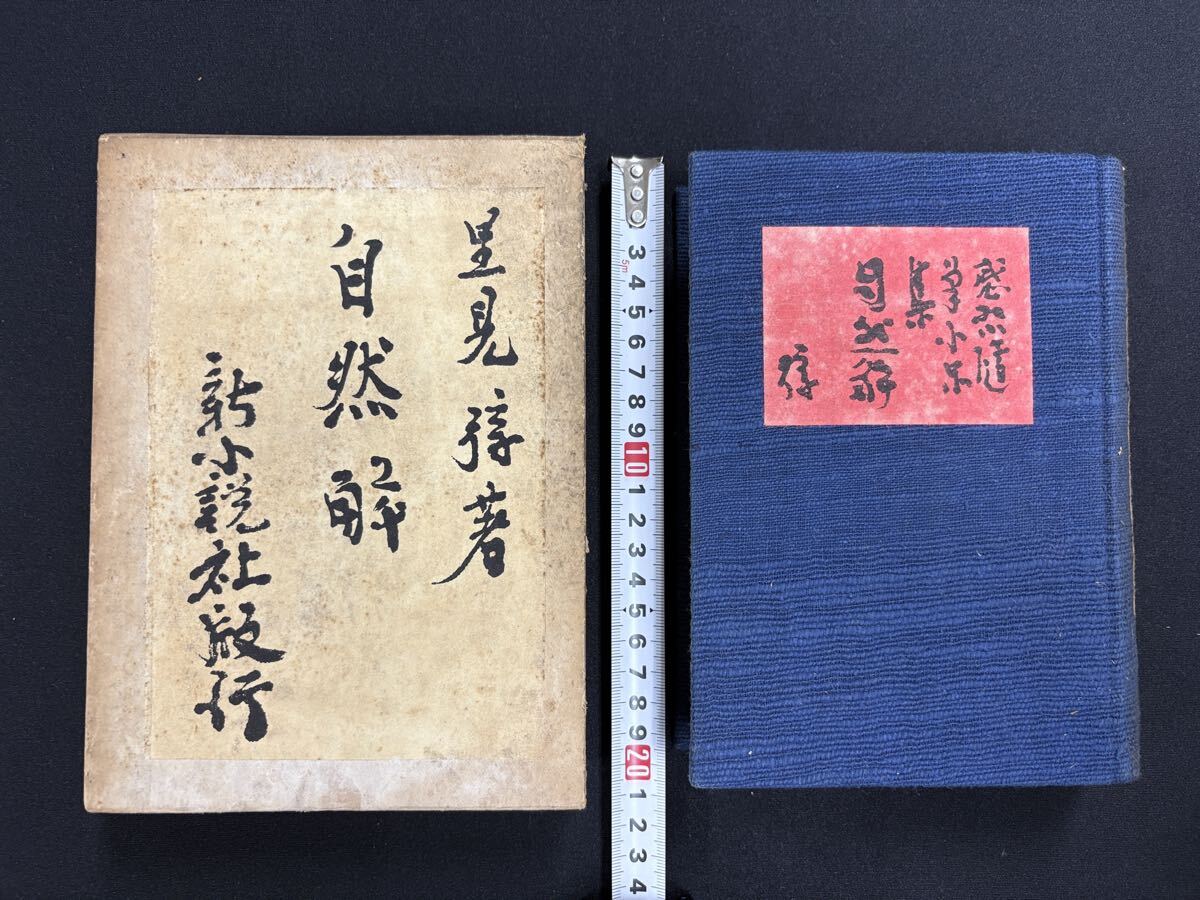 里見弴著
自然解
新小説社版行
5m
3 4 5 6 7 8 9 10 1 2 3 4 5 6 7 8 9 20 1 2 3 4
感想随
筆小品
集
自然解
弴